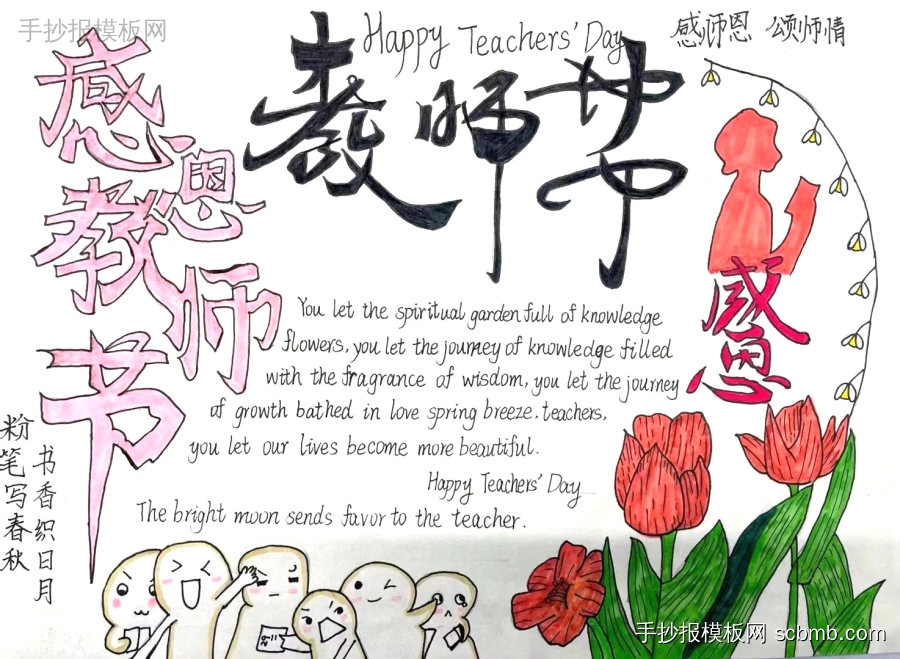 手抄报模板网
Happy Teachers' Day
感师恩 颂师情
教师节
感恩
教师
节
感恩
You let the spiritual garden full of knowledge
flowers, you let the journey of knowledge filled
with the fragrance of wisdom, you let the journey
of growth bathed in love spring breeze. teachers,
you let our lives become more beautiful.
Happy Teachers' Day
The bright moon sends favor to the teacher.
粉笔写春秋
书香织日月
手抄报模板网 scbmb.com